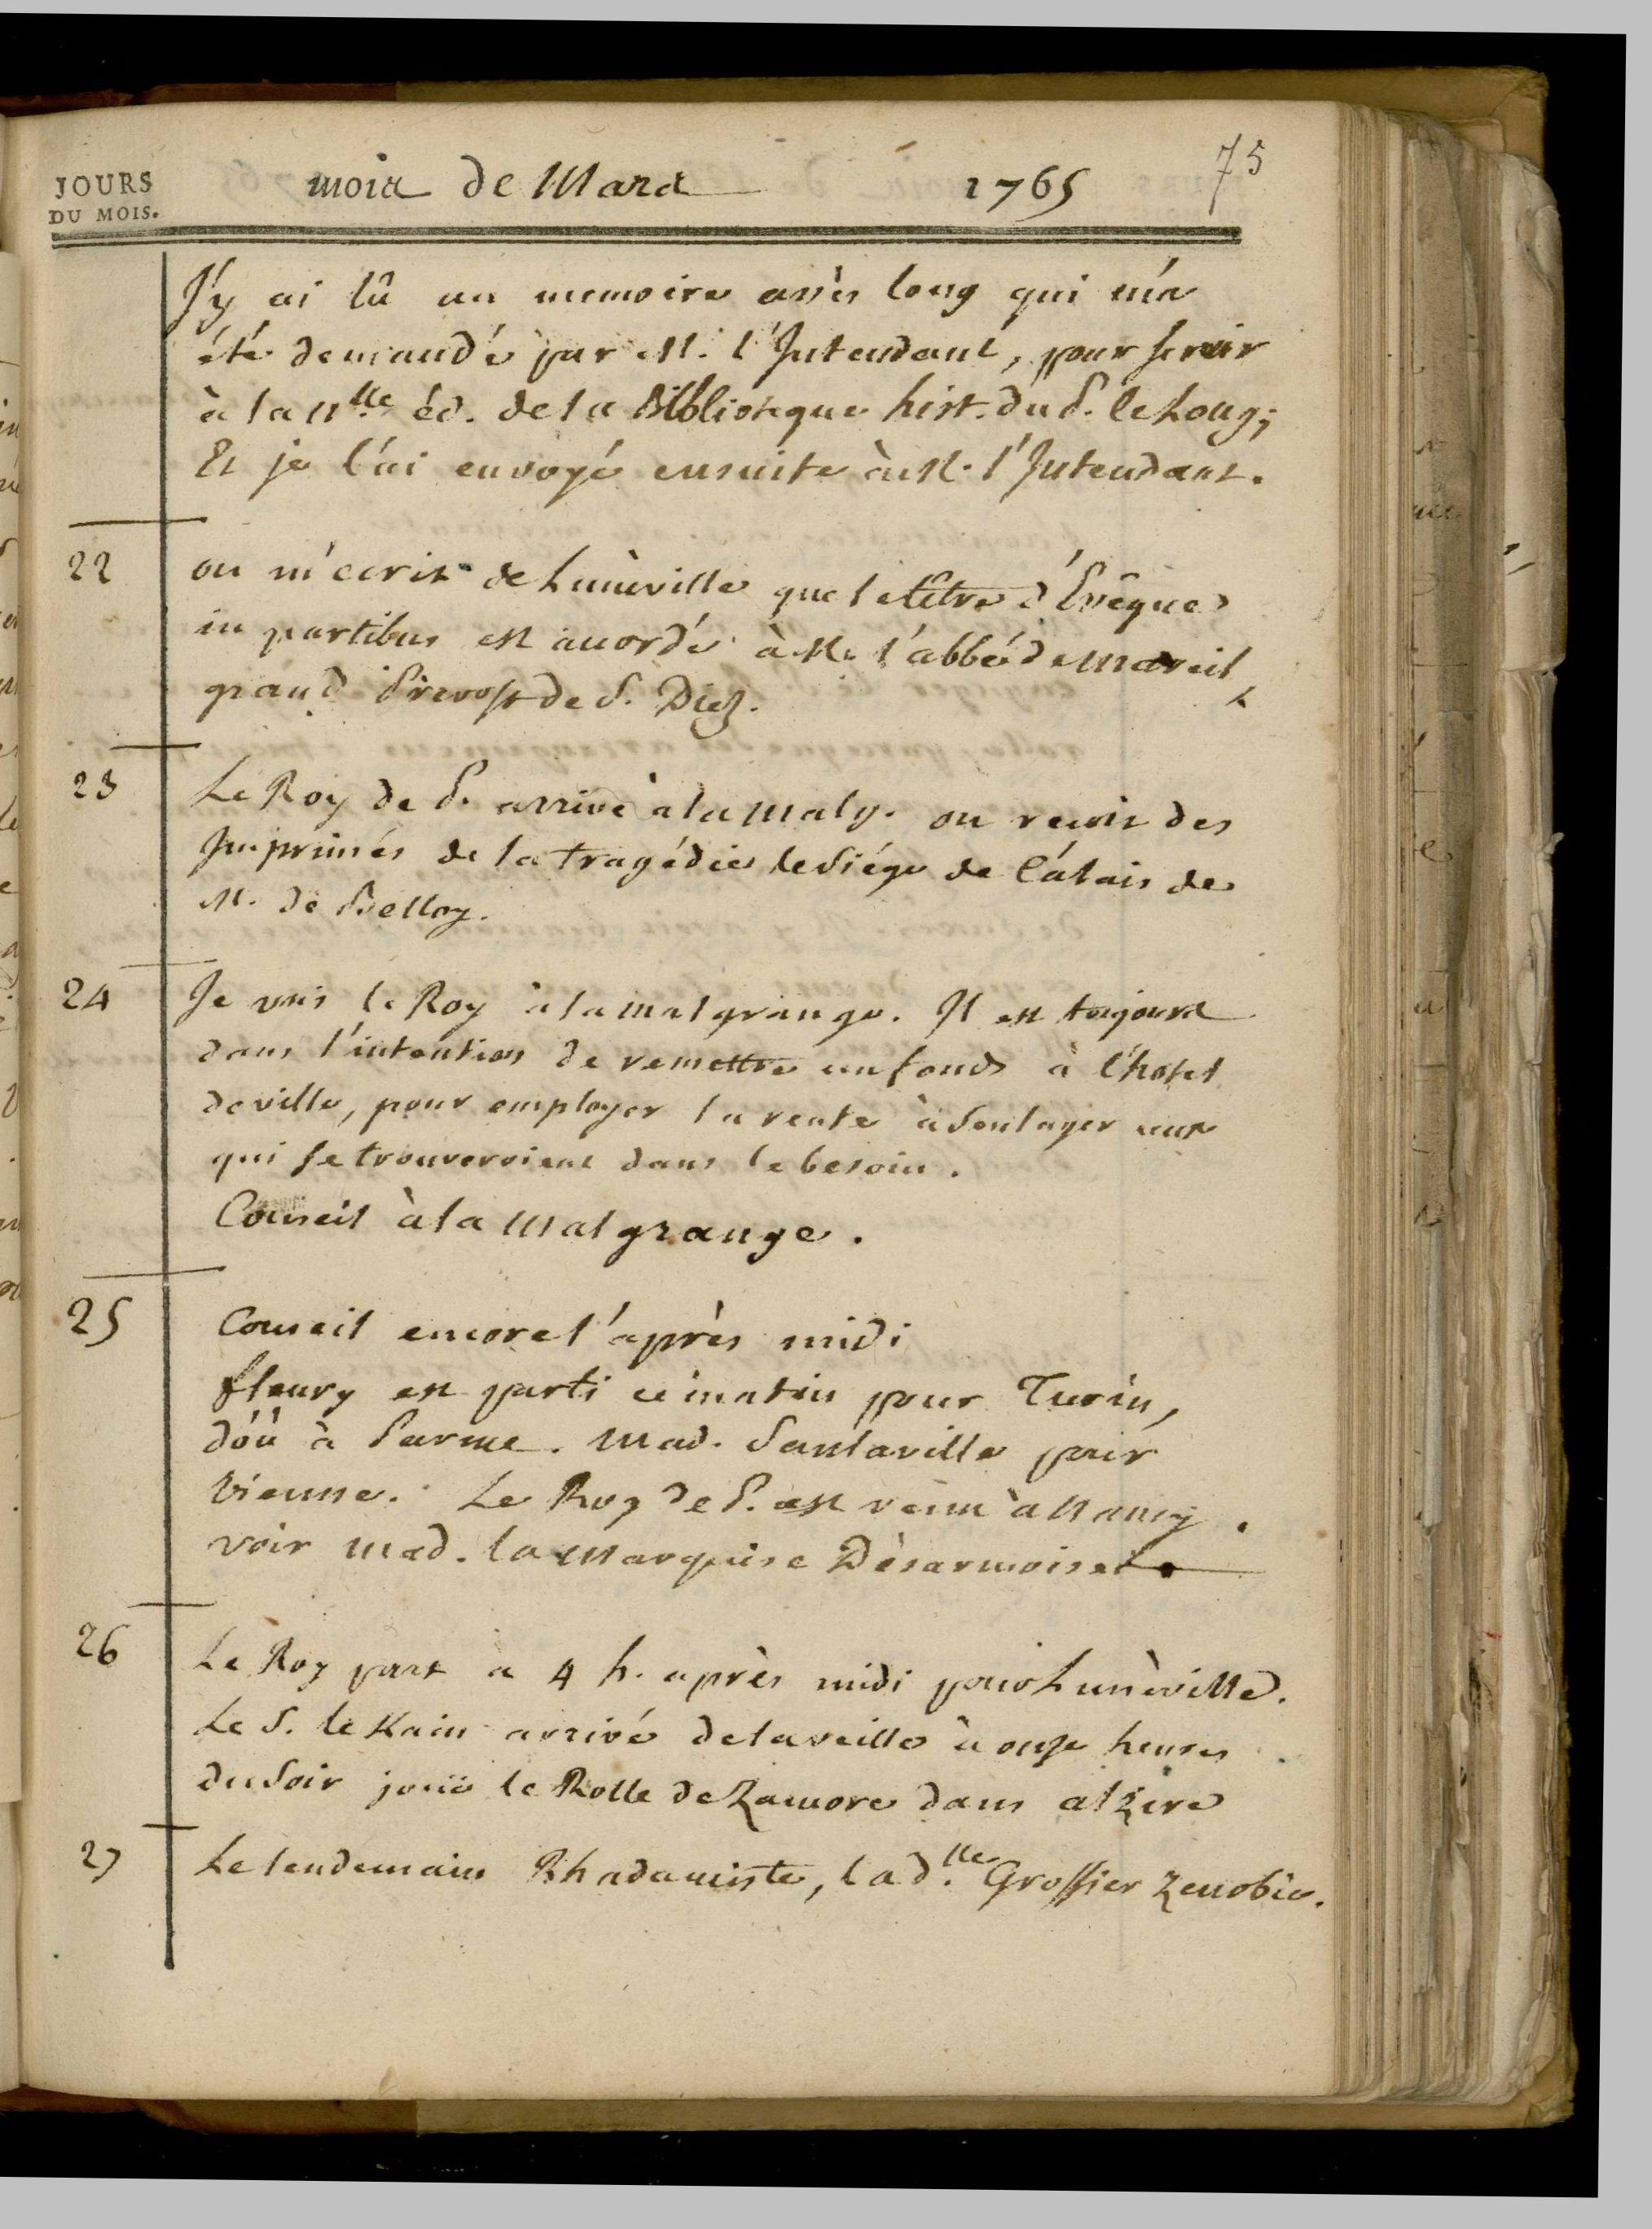 75
JOURS DU MOIS. mois de Mars 1765
J'y ai lû un memoire assès long qui m'a
été demandé par M. l'Intendant, pour servir
à la nlle éd. de la Biblioteque hist. du P. le Long;
Et je l'ai envoyé ensuite à M. l'Intendant.
22 on m'ecrit de Lunéville que le titre d'Evêque
in partibus est accordé à M. l'abbé de Mareil,
grand Prevost de S. Diez.
23 Le Roy de P. arrive à la Malg. on reçoit des
Imprimés de la tragédie le Siége de Calais de
M. de Belloy.
24 Je vois le Roy à la Malgrange. Il est toujours
dans l'intention de remettre un fonds à l'hotel
de ville, pour employer la rente à Soulager ceux
qui se trouveroient dans le besoin.
Conseil à la Malgrange.
25 Conseil encore l'après midi
fleury est parti ce matin pour Turin,
d'où à Parme. Mad. Santaville pour
Vienne. Le Roy de P. est venu à Nancy
voir Mad. la Marquise Désarmoises
26 Le Roy part à 4 h. après midi pour Lunéville.
Le S. le Kain arrivé de la veille à onze heures
du Soir joue le Rolle de Zamore dans alzire
27 Le lendemain Rhadamiste, la dlle. Grossier Zenobie.